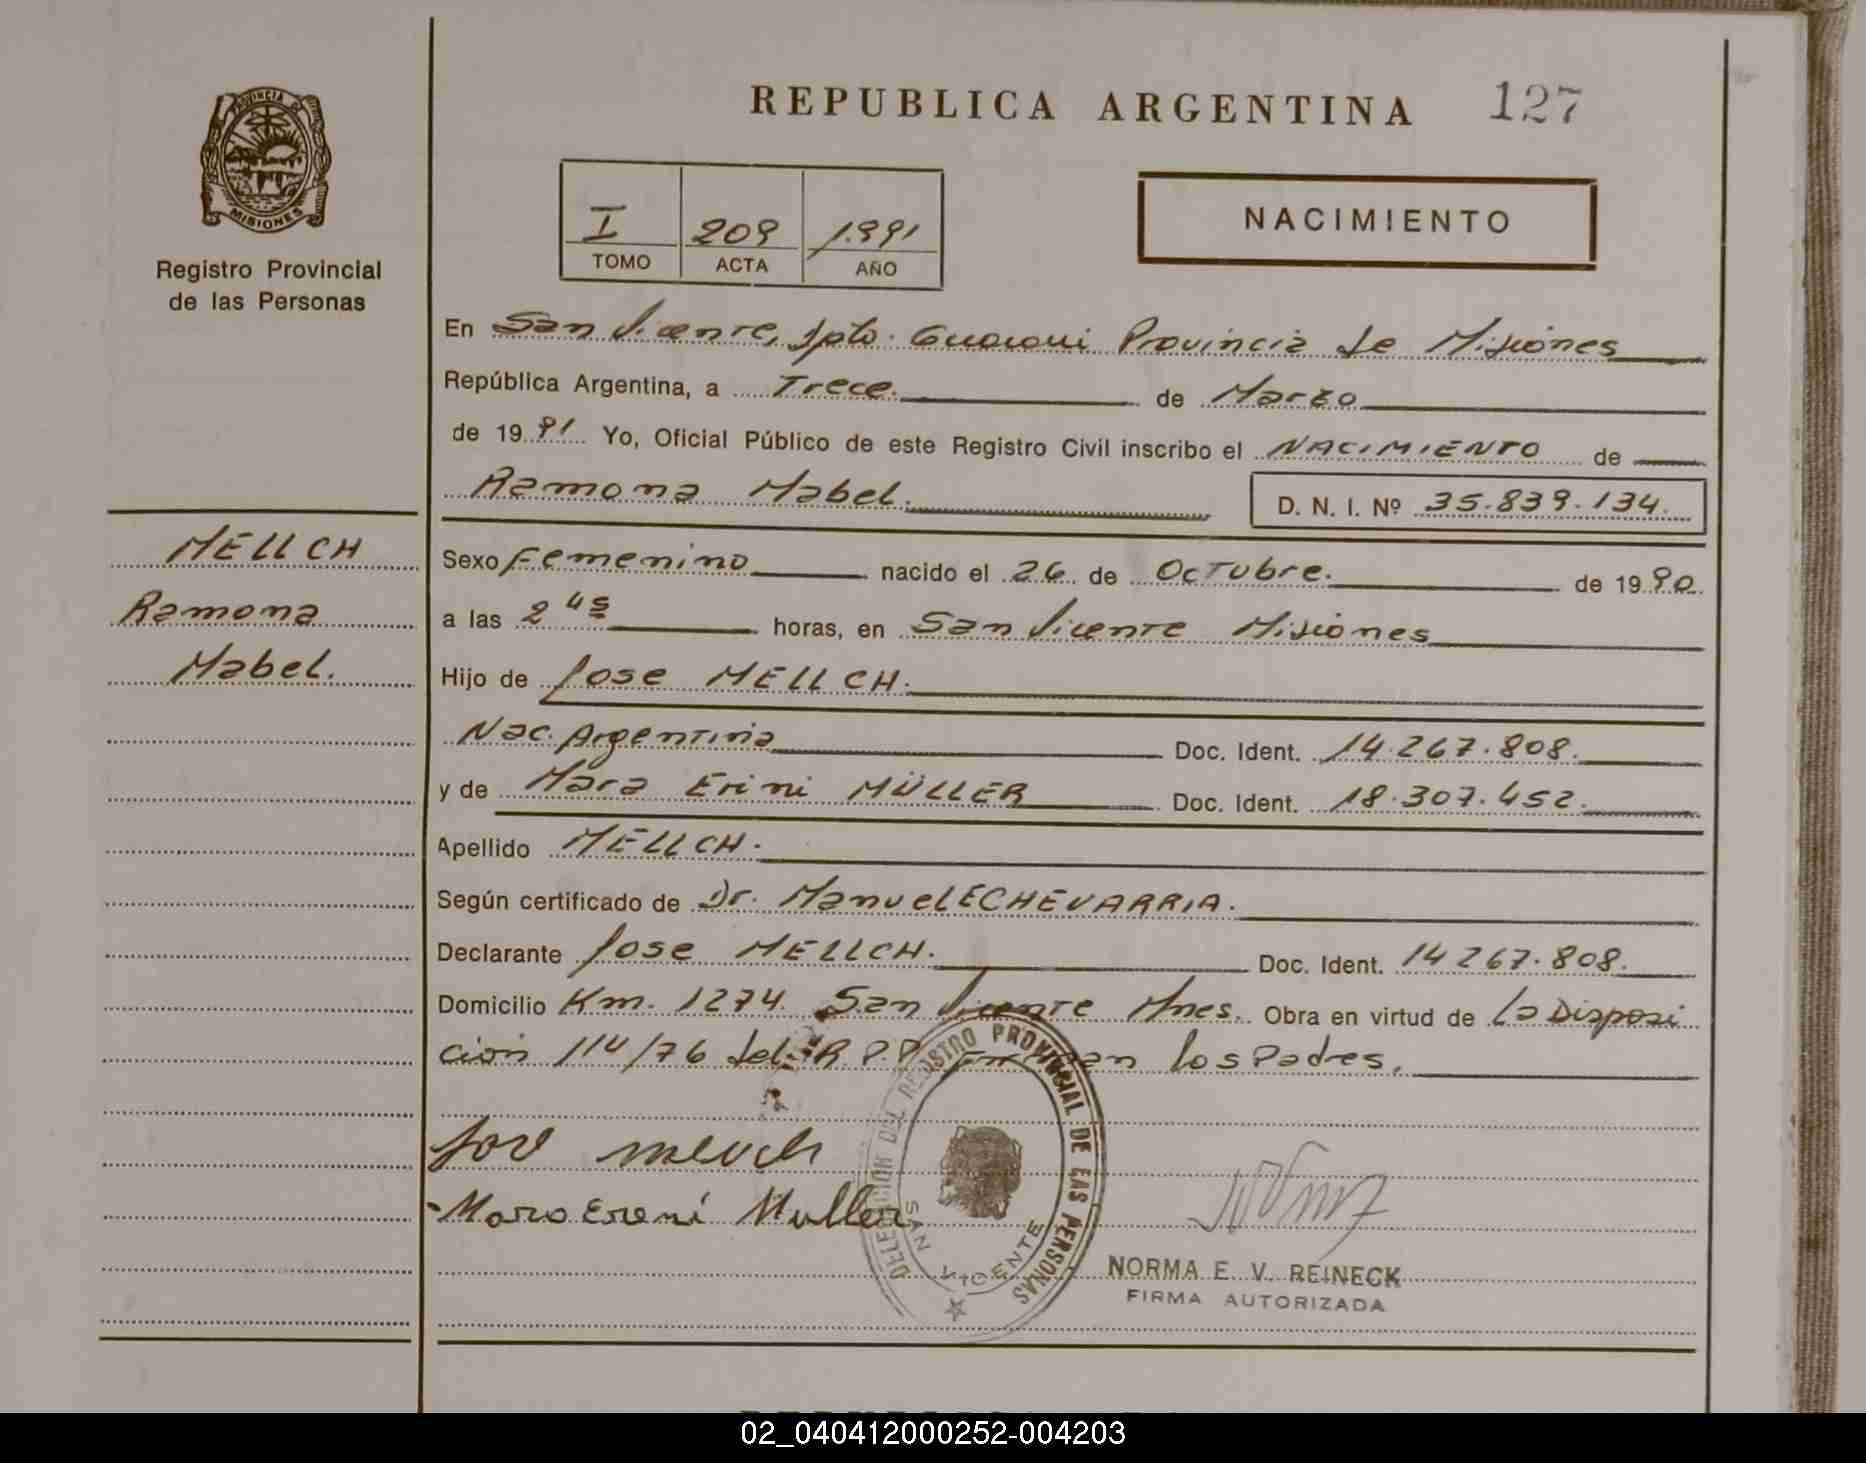 REPUBLICA ARGENTINA 127
PROVINCIA DE
MISIONES
Registro Provincial
de las Personas
I 209 1.991
TOMO ACTA AÑO
NACIMIENTO
En San Vicente, Dpto. Guarani Provincia de Misiones
República Argentina, a Trece. de Marzo
de 1991 Yo, Oficial Público de este Registro Civil inscribo el NACIMIENTO de
Ramona Mabel.
D. N. I. Nº 35.839.134.
MELLCH
Ramona
Mabel.
Sexo Femenino nacido el 26 de Octubre. de 1990
a las 2 45 horas, en San Vicente Misiones
Hijo de Jose MELLCH.
Nac. Argentina Doc. Ident. 14.267.808.
y de Mara Erini MÜLLER Doc. Ident. 18.307.452.
Apellido MELLCH.
Según certificado de Dr. Manuel ECHEVARRIA.
Declarante Jose MELLCH. Doc. Ident. 14 267.808.
Domicilio Km. 1274. San Vicente Mnes. Obra en virtud de La Disposi
cion 114/76 del R.P.P. Firman los Padres.
Mara Ereni Muller
DELEGACION DEL REGISTRO PROVINCIAL DE LAS PERSONAS
SAN VICENTE
NORMA E. V. REINECK
FIRMA AUTORIZADA
02_040412000252-004203